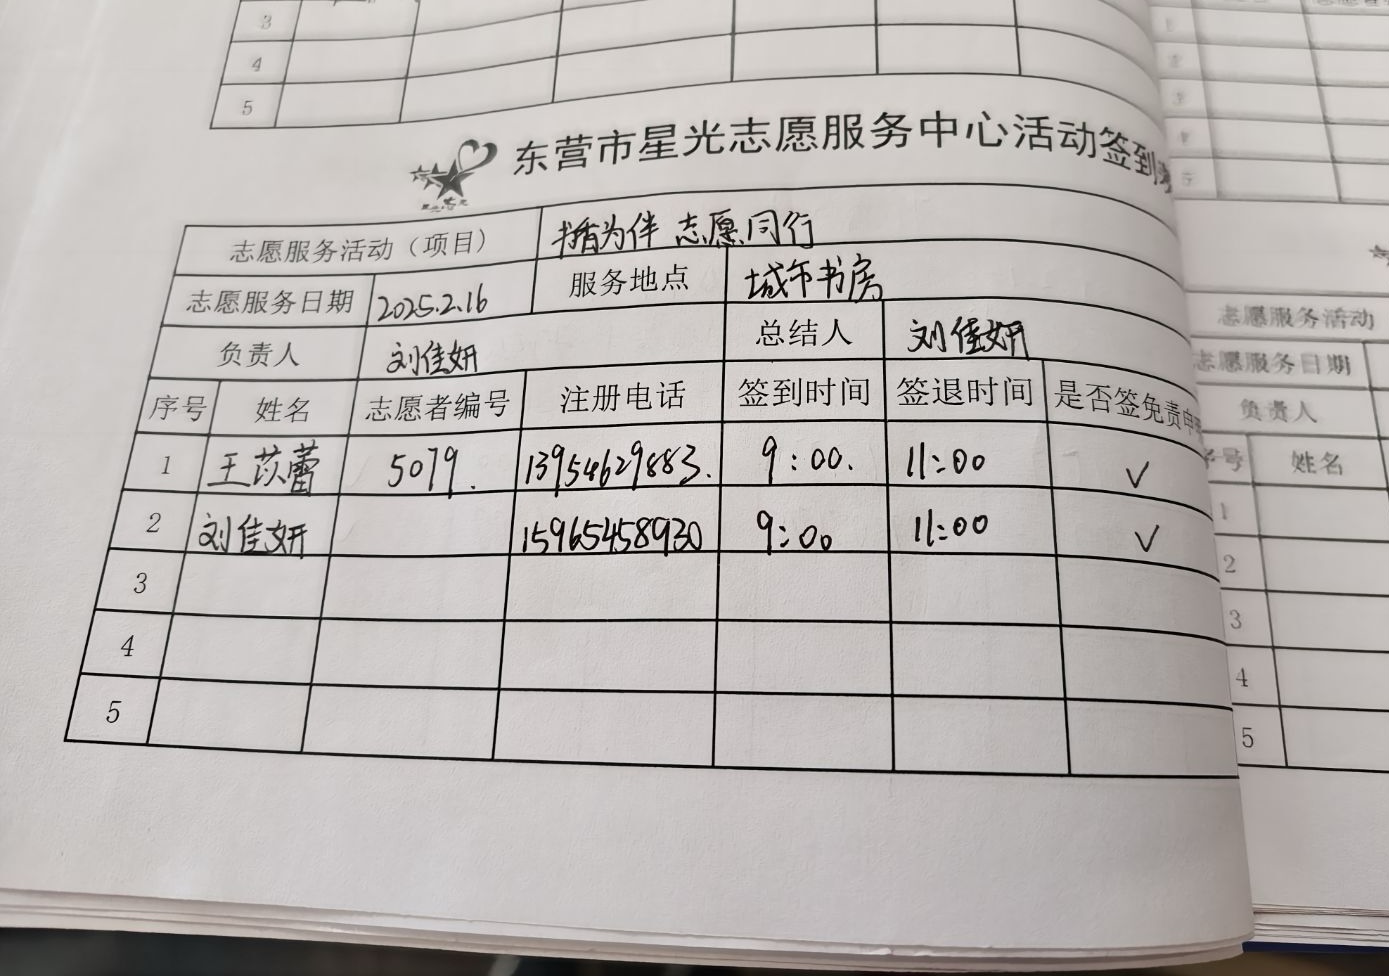 3
4
5
东营市星光志愿服务中心活动签到
志愿服务活动（项目） 书香为伴 志愿同行
志愿服务日期 2025.2.16 服务地点 城市书房
负责人 刘佳妍 总结人 刘佳妍
序号 姓名 志愿者编号 注册电话 签到时间 签退时间 是否签免责申
1 王苡蕾 5079. 13954629883. 9:00. 11:00 ✓
2 刘佳妍 15965458930 9:00 11:00 ✓
3
4
5
志愿服务活动
志愿服务日期
负责人
序号 姓名
1
2
3
4
5